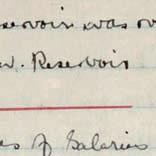 reservoir was
w. Reservoir
es of Salaries